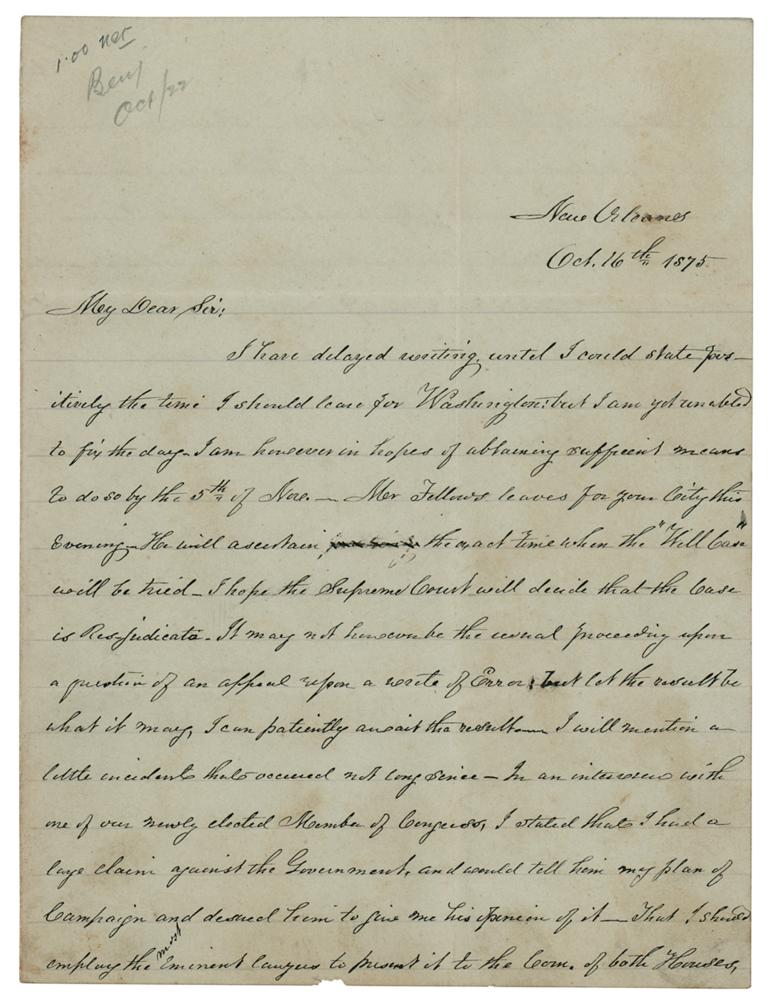 1.00 net
Benj
Oct/22
New Orleans
Oct. 16th 1875
My Dear Sir:
I have delayed writing, until I could state pos-
itively the time I should leave for Washington: but I am yet unabled
to fix the day. I am however in hopes of obtaining suffient means
to do so by the 5th of Nov. — Mr Fellows leaves for your City this
Evening — He will ascertain, the exact time when the "Will Case"
will be tried — I hope the Supreme Court will decide that the Case
is Res-judicata. It may not however be the usual proceeding upon
a question of an appeal upon a write of Error; but let the result be
what it may, I can patiently await the result — I will mention a
little incident that occured not long since — In an interview with
one of our newly elected Member of Congress, I stated that I had a
large claim against the Government, and would tell him my plan of
Campaign and desired him to give me his opinion of it — That I should
employ the most Eminent lawyers to present it to the Com. of both Houses,